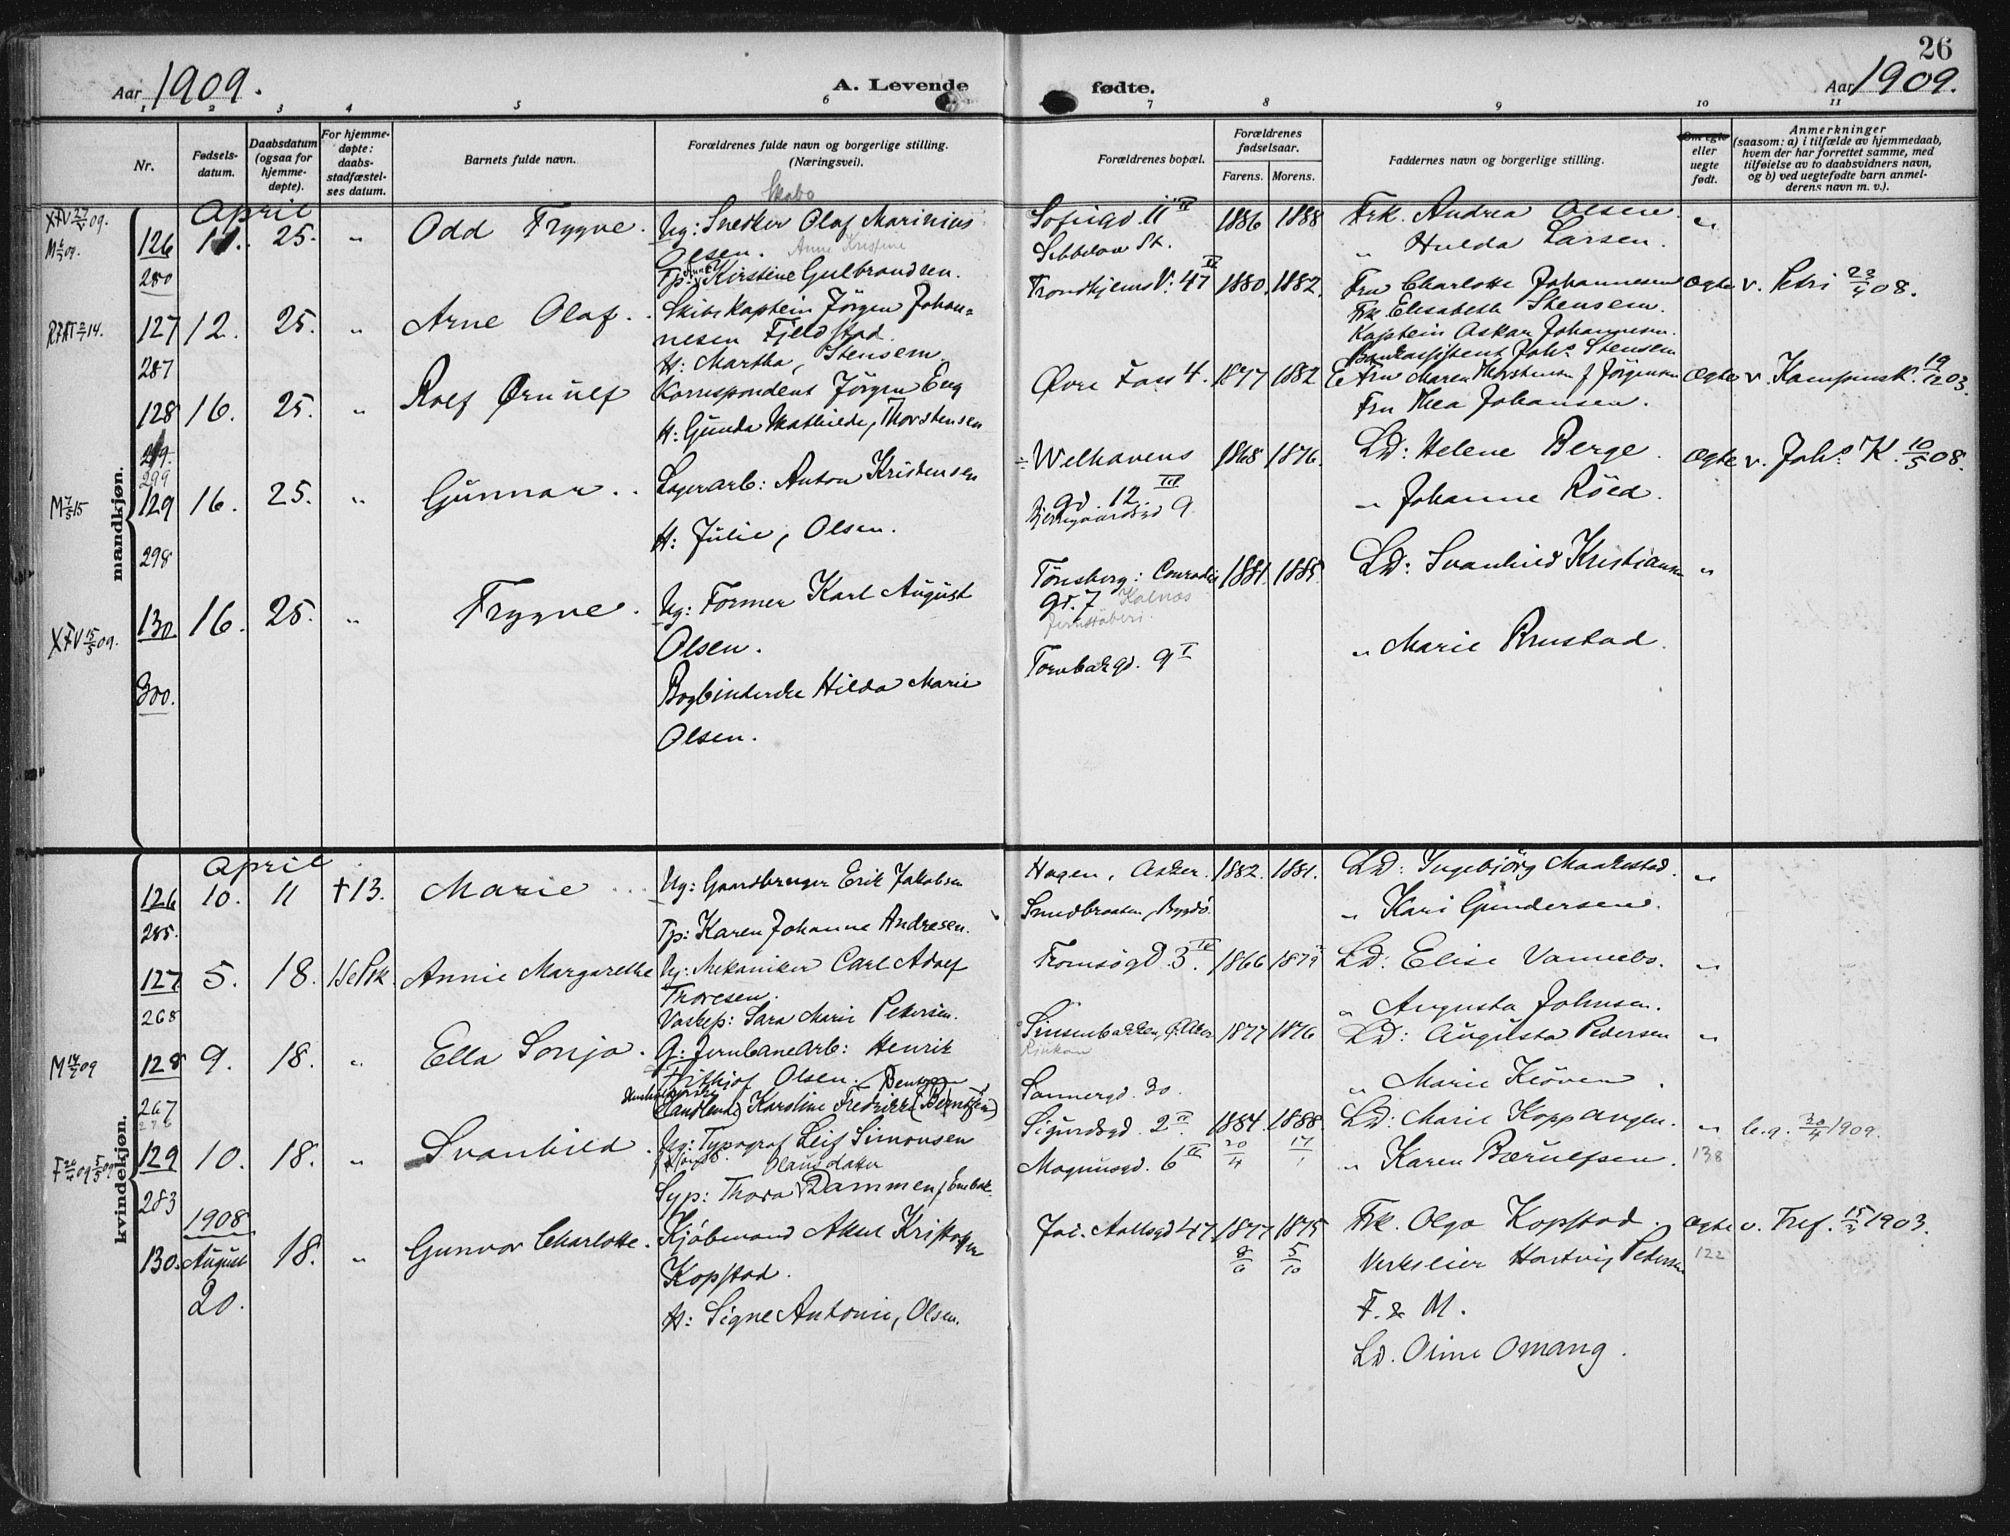 26
Aar 1909.
A. Levende
fødte.
Aar 1909.
1 2 3 4 5 6 7 8 9 10 11
Nr.
Fødsels-
datum.
Daabsdatum
(ogsaa for
hjemme-
døpte).
For hjemme-
døpte:
daabs-
stadfæstel-
ses datum.
Barnets fulde navn.
Forældrenes fulde navn og borgerlige stilling.
(Næringsvei).
Forældrenes bopæl.
Forældrenes
fødselsaar.
Farens. Morens.
Faddernes navn og borgerlige stilling.
Om egte
eller
uegte
født.
Anmerkninger
(saasom: a) i tilfælde av hjemmedaab,
hvem der har forrettet samme, med
tilføielse av to daabsvidners navn,
og b) ved uegtefødte barn anmel-
derens navn m. v.).
mandkjøn.
April
126 25. " Odd Trygve.
280
Skabo
Ug: Snedker Olaf Marinius
Olsen. Anne Kristine
Tp: Kirstine Gulbrandsen.
Sofiegd. 11 II 1886 1888
Frk. Andrea Olsen. "
" Hulda Larsen.
127 12. 25. " Arne Olaf.
287
Skibskaptein Jørgen Johan-
nesen Fjeldstad.
H: Martha, Stensem.
Trondhjems V. 47 II 1880. 1882.
Fru Charlotte Johannesen
Frk. Elisabeth Stensem.
Kaptein Askar Johannesen.
Bankassistent Johs Stensem
Ogte v. Petri 23/4 08.
128 16. 25. " Rolf Ørnulf
Korrespondent Jørgen Eng
H: Gunda Mathilde, Thorstensen
Øvre Foss 4. 1877 1882
Fru Maren Thorstensen f Jörgensen
Fru Thea Johansen.
Ogte v. Kampensk. 19/12 03.
299
129 16. 25. " Gunnar
298
M 7/5 15
Lagerarb: Anton Kristensen
H: Julie, Olsen.
Welhavens
gd. 12 III
Bjerregaardsgd 9
1868 1876.
Ld: Helene Berge.
" Johanne Röed.
Ogte v. Johs K. 10/5 08.
130 16. 25. " Trygve.
300.
Ug: Former Karl August
Olsen.
Bogbinderske Hilda Marie
Olsen.
Tönsberg: Conradis
gt. 7 Kalnæs
Tornbakgd. 9 I
1881. 1885.
Ld: Svanhild Kristiansen "
" Marie Rustad.
kvindekjøn.
April
126 10. 11 †13. Marie
285.
Ug: Gaardbruger Erik Jakobsen
Tp: Karen Johanne Andresen.
Hagen, Asker. 1882. 1881.
Smedbraaten, Bygdö.
Ld: Ingebjörg Maakestad. "
" Kari Gundersen.
127 5. 18. Annie Margarethe
268
Ug: Mekaniker Carl Adolf
Thoresen.
Vaskep: Sara Marie Petersen.
Tromsögd 3 IV. 1866 1879
Ld: Elise Vannebo. "
" Augusta Johnsen.
128 9. 18. " Ella Sonja.
267
276
M 14/6 09
G: Jernbanearb: Henrik
Frithjof Olsen.
Karoline Fredrikke (Berntzen)
Sinsenbakken, Ø. Aker 1877 1876
Rjukan
Sannergd. 30
Ld: Augusta Pedersen "
" Marie Klöven.
129 10. 18. " Svanhild.
283
Ug: Typograf Leif Simonsen
Olausdatter
Syp: Thora Dammen, Enebak.
Sigurdsgd. 2 II. 1884. 1888
20/4 17/1
Magnusgd. 6 II
Ld: Marie Koppangen. "
" Karen Bærulfsen. 138
b.g. 30/4 1909.
1908
130. August 18. " Gunvor Charlotte.
20.
Kjöbmand Aksel Kristofer
Kopstad.
H: Signe Antonie, Olsen.
Jac. Aallsgd 47. 1877 1875
8/6 5/10
Frk. Olga Kopstad. Ogte v. Tref. 15/3 1903.
Verkseier Hartvig Pedersen 122
F. & M.
Ld. Oline Omang.